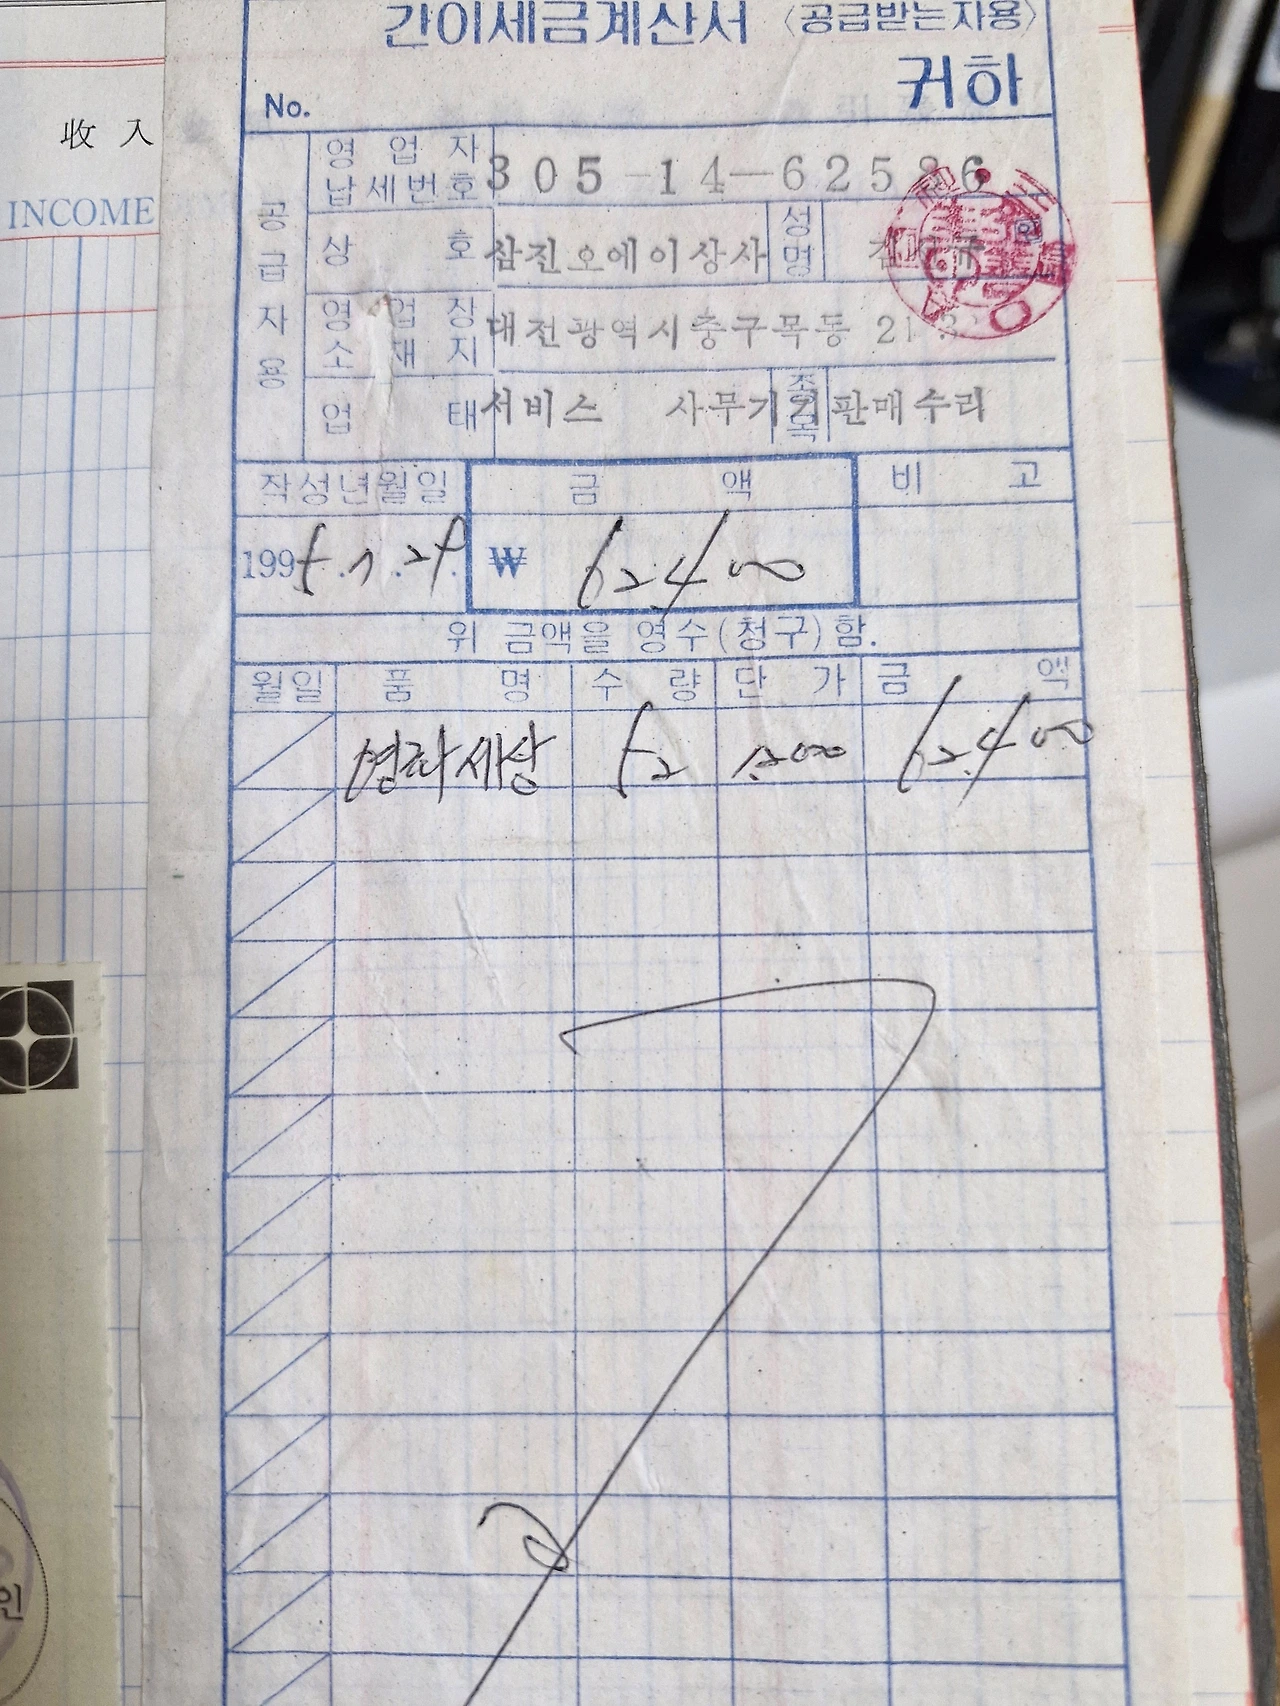 간이세금계산서 〈공급받는자용〉
귀하
No.
收 入
INCOME
공급자용
영업자
납세번호
305-14-62586
상 호
삼진오에이상사
성명
영업장
소재지
대전광역시중구목동
업 태
서비스
사무기기판매수리
종목
작성년월일
금 액
비 고
1995.7.29.
₩ 62,400
위 금액을 영수(청구)함.
월일 품 명 수 량 단 가 금 액
영화세상 52 1,200 62,400
인